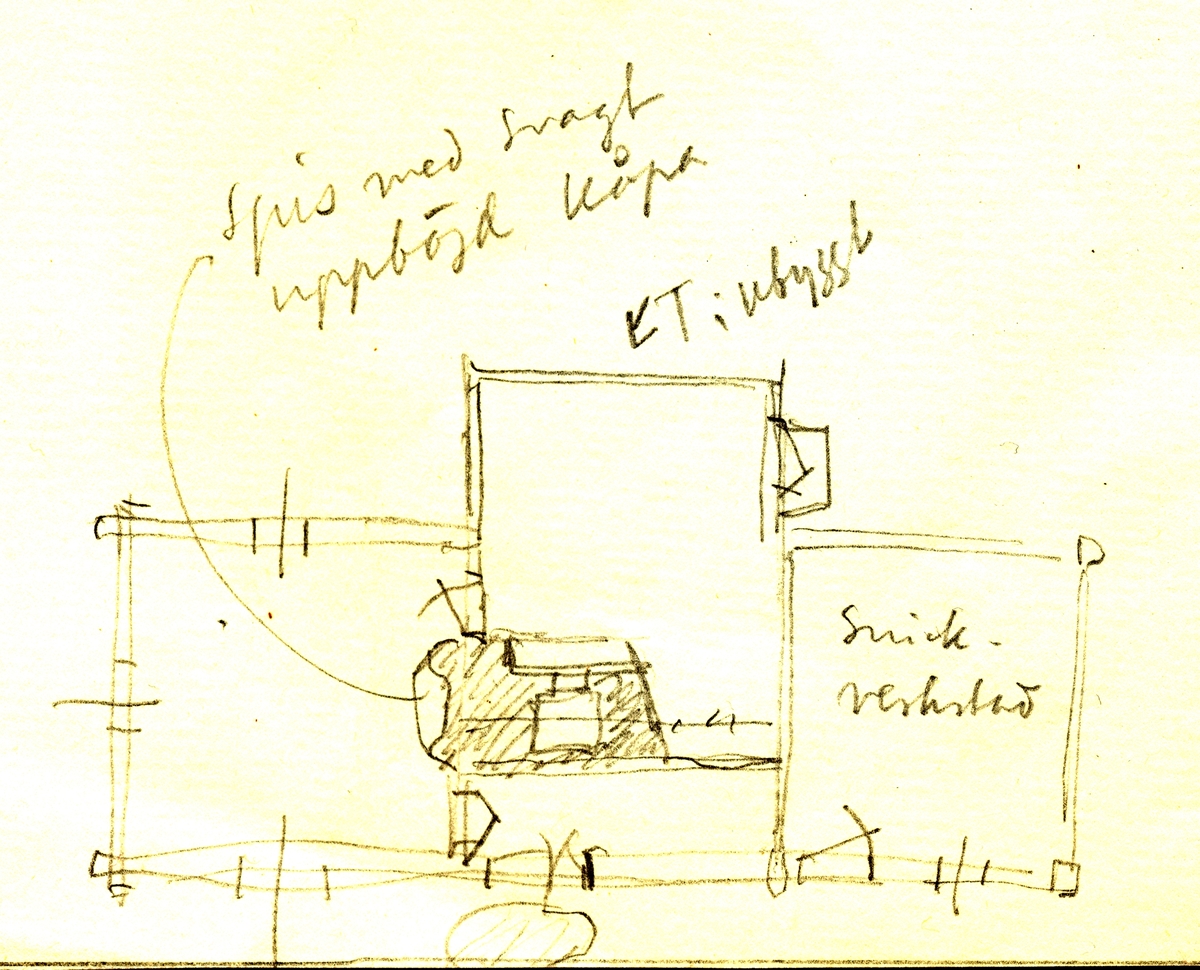 Spis med svagt
uppböjd kåpa
KT: ubyggt
Snick-
verkstad